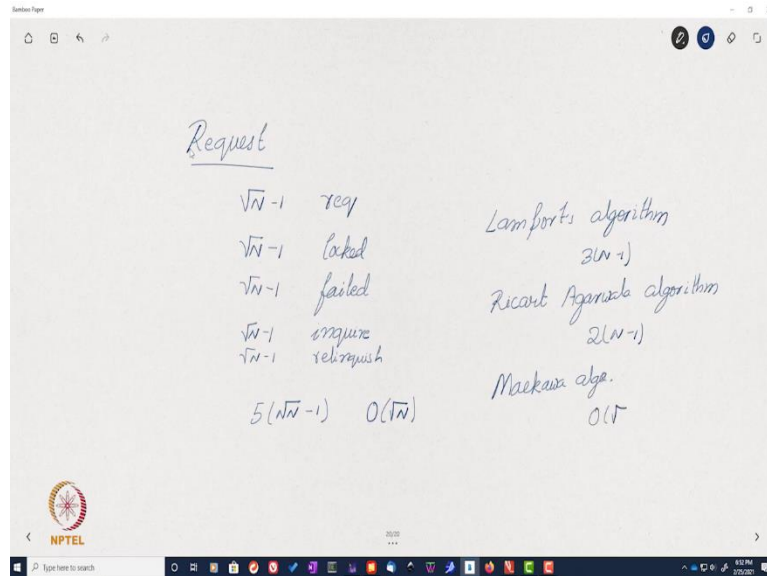 Bamboo Paper
Request
√N -1 req
√N -1 locked
√N -1 failed
√N -1 inquire
√N -1 relinquish
5(√N -1) O(√N)
Lamport's algorithm
3(N-1)
Ricart Agarwala algorithm
2(N-1)
Maekawa algo.
O(√
NPTEL
20/20
Type here to search
6:52 PM
2/25/2021